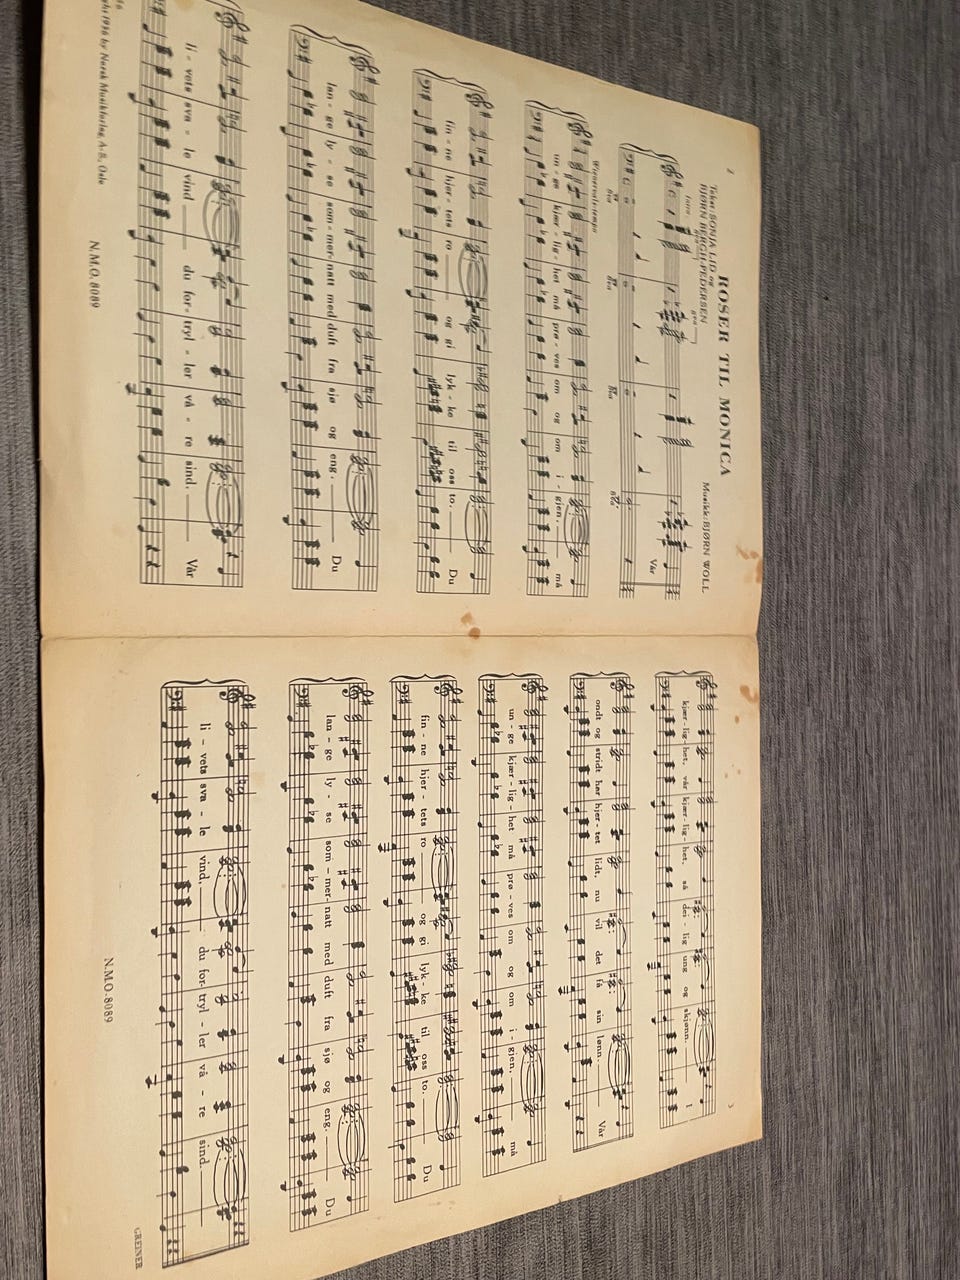 2
ROSER TIL MONICA
Tekst: SONJA LID og
BJØRN BERGH-PEDERSEN
Musikk: BJØRN WOLL
Intro.
8va
8va
Vår
Wienervalstempo
un - ge kjær - lig - het må prø - ves om og om i - gjen. må
fin - ne hjer - tets ro og gi lyk - ke til oss to. Du
lan - ge ly - se som - mer - natt med duft fra sjø og eng. Du
li - vets sva - le vind du for - tryl - ler vå - re sind. Vår
1956 by Norsk Musikforlag A-S, Oslo
N.M.O. 8089
3
kjær - lig - het, vår kjær - lig - het, så dei - lig ung og skjønn. I
ondt og stridt har hjer - tet lidt, nu vil det få sin lønn. Vår
un - ge kjær - lig - het må prø - ves om og om i - gjen, må
fin - ne hjer - tets ro og gi lyk - ke til oss to. Du
lan - ge ly - se som - mer - natt med duft fra sjø og eng. Du
li - vets sva - le vind, du for - tryl - ler vå - re sind.
N.M.O. 8089
GREINER